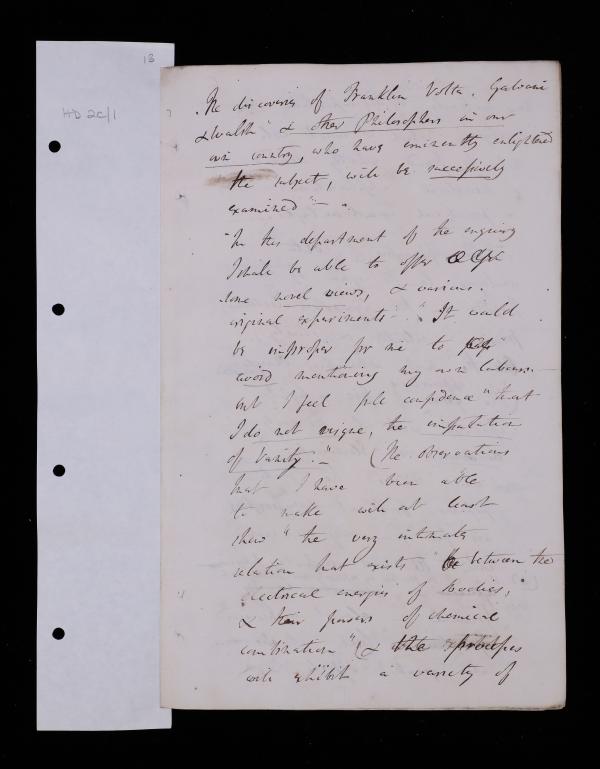 13
HD 2C/1
The discoveries of Franklin Volta. Galvani
& Walsh" & other Philosophers in our
own country, who have eminently enlightened
the subject, will be successively
examined" –
"In this department of the enquiry
I shall be able to offer
some novel views, & various.
original experiments – "It would
be improper for me to
avoid mentioning my own labours. –
but I feel full confidence "that
I do not risque, the imputation
of Vanity." – (The observations
that I have been able
to make will at least
shew "the very intimate
relation that exists between the
electrical energies of bodies,
& their powers of chemical
combination" (&
will exhibit a variety of